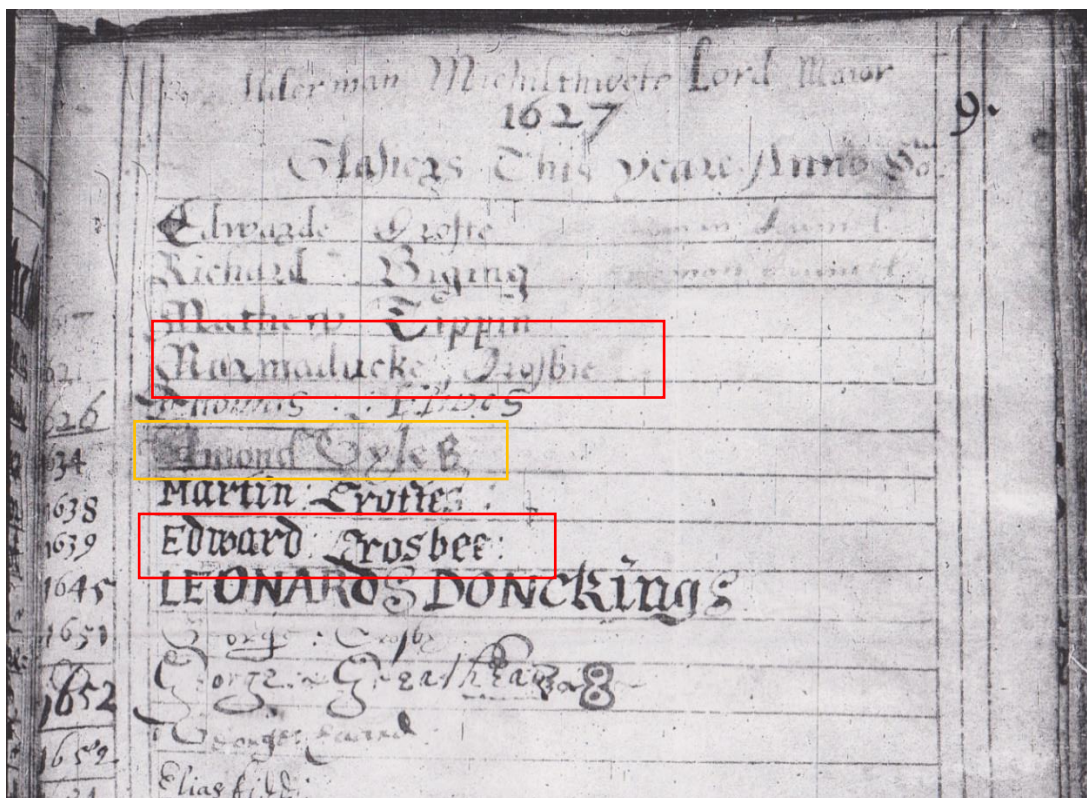 Alderman Michilthwete Lord Maior
1627
9.
Glasiers This yeare Anno
Edwarde Croste
Richard Biging
Mathew Tippin
Marmaducke Crosbie
1626 Thomas
1634 Edmond Gyles
1638 Martin Croftes
1639 Edward Crosbee
1645 LEONARD DONCKings
1651 George Crosby
1652 George Greathead
1659 George
Elias